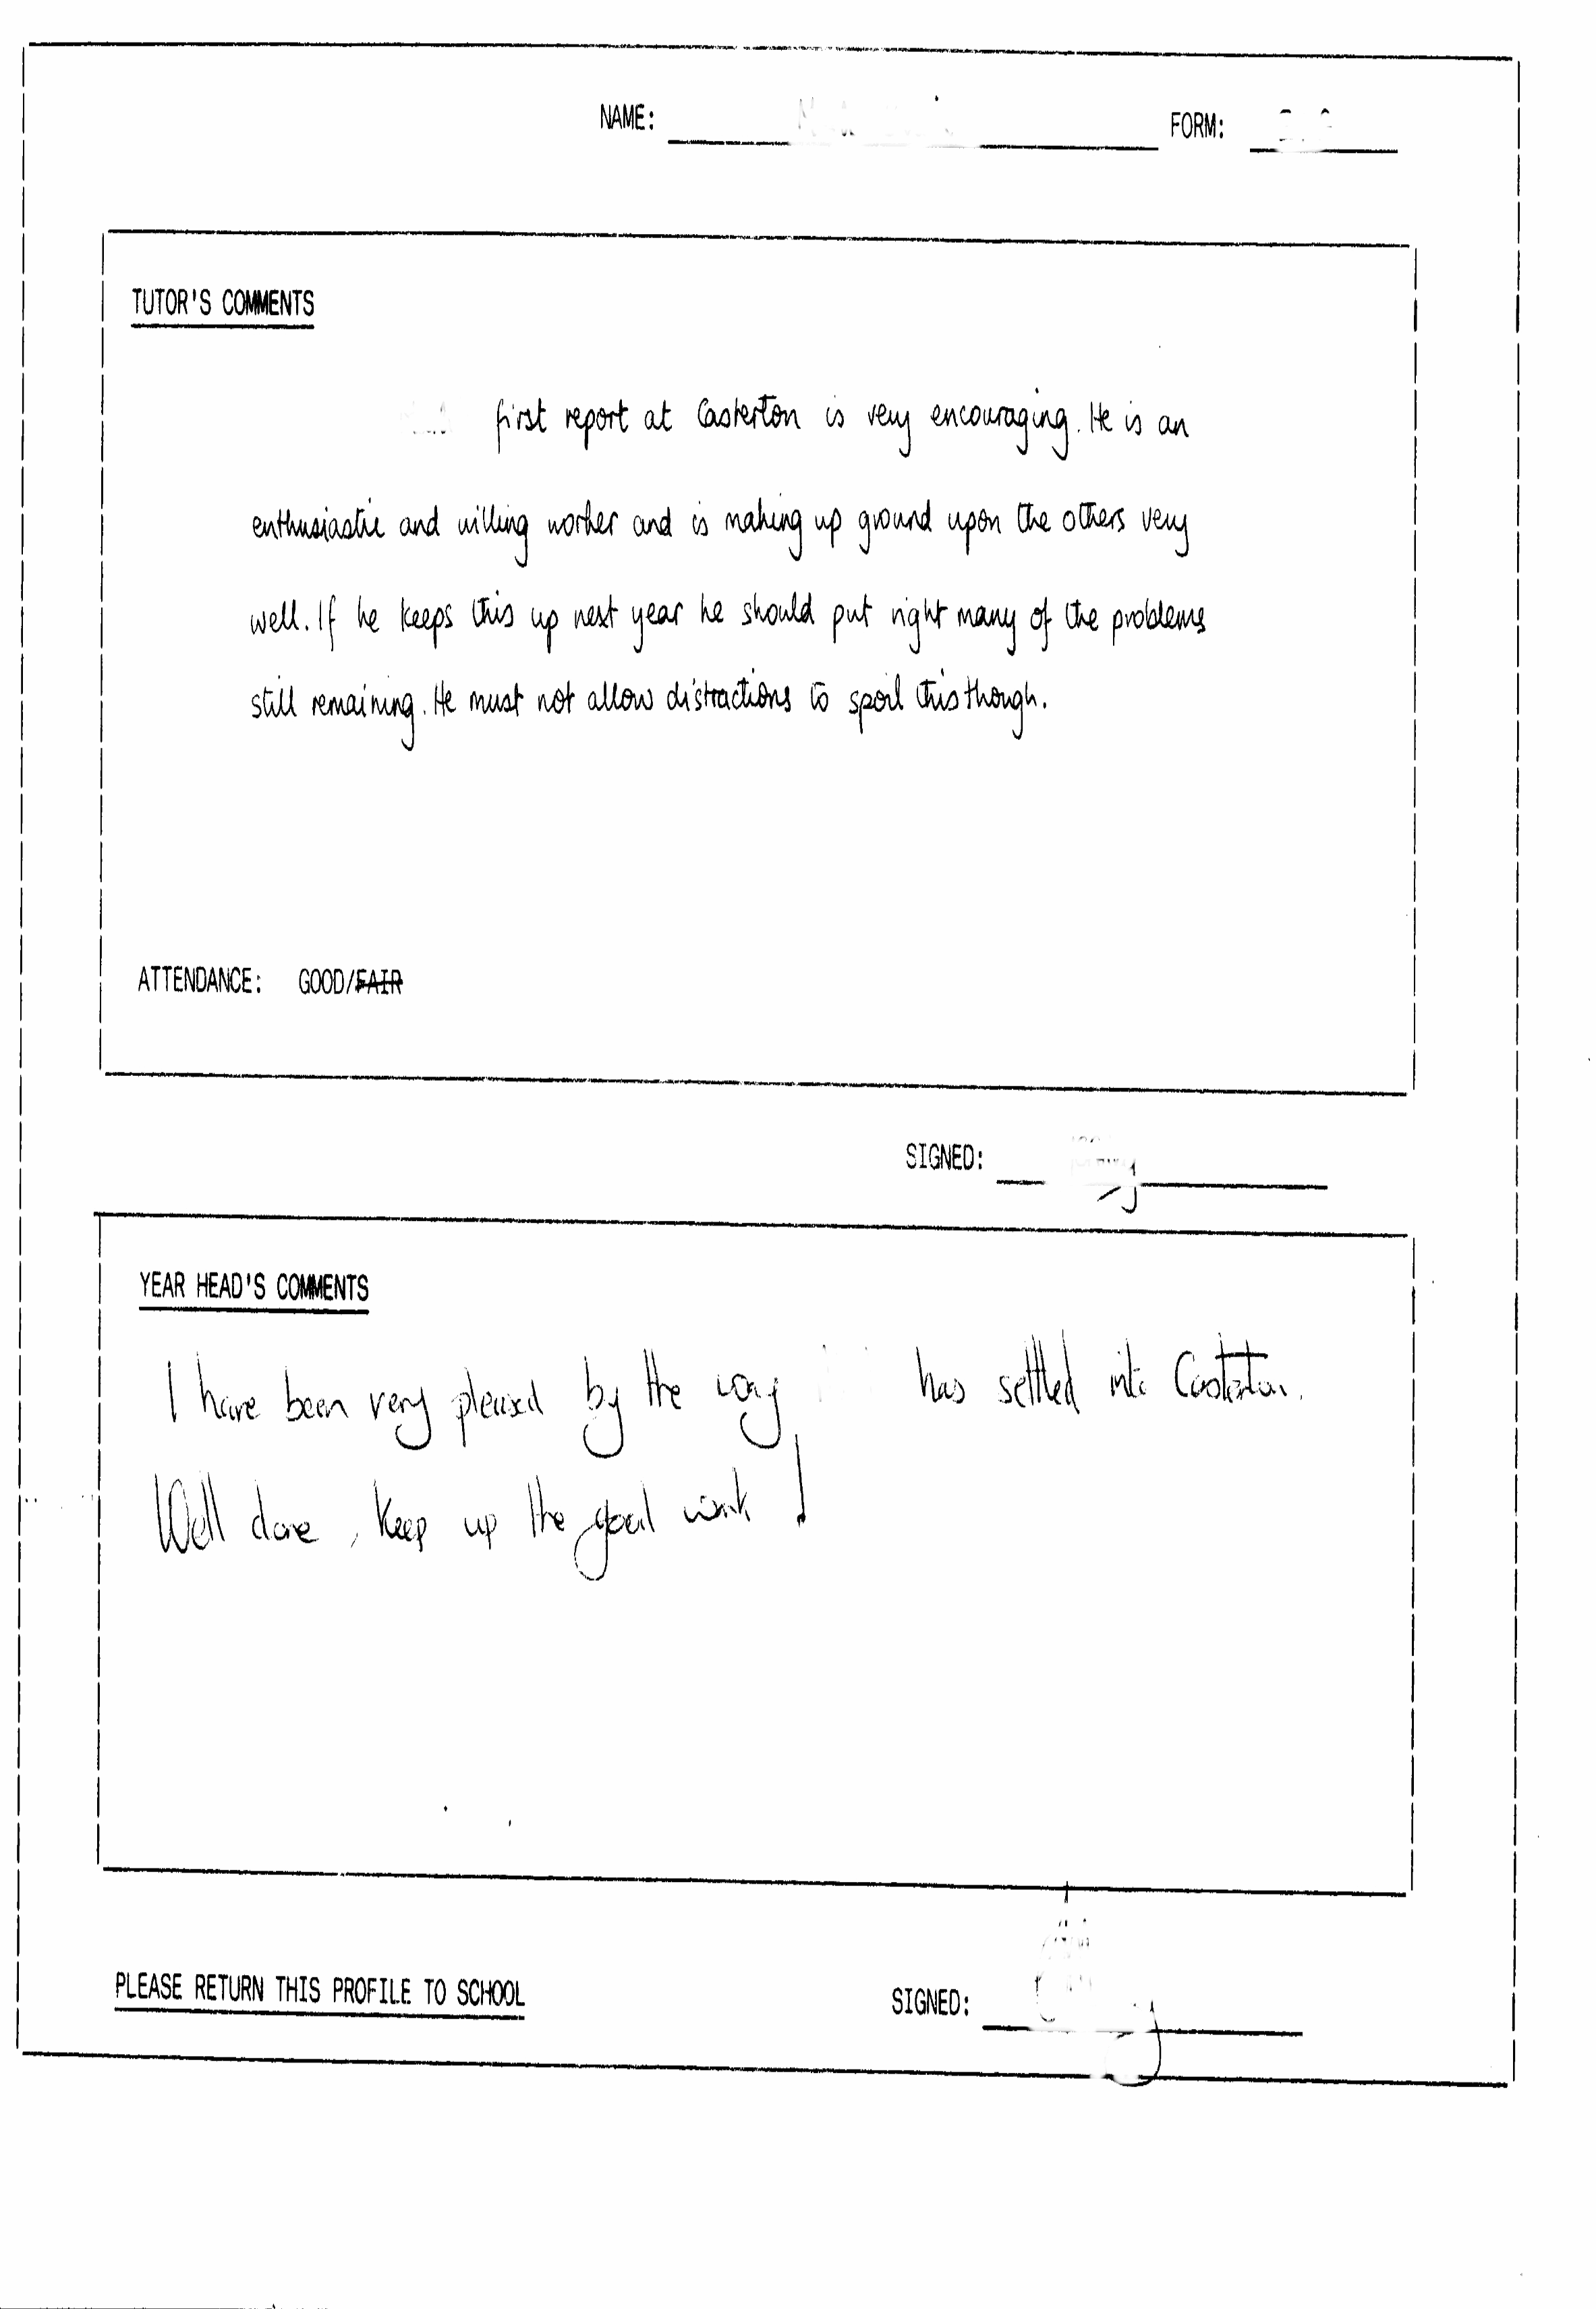 NAME: FORM:
TUTOR'S COMMENTS
first report at Casterton is very encouraging. He is an
enthusiastic and willing worker and is making up ground upon the others very
well. If he keeps this up next year he should put right many of the problems
still remaining. He must not allow distractions to spoil this though.
ATTENDANCE: GOOD/FAIR
SIGNED:
YEAR HEAD'S COMMENTS
I have been very pleased by the way has settled into Casterton.
Well done, keep up the good work!
PLEASE RETURN THIS PROFILE TO SCHOOL SIGNED: